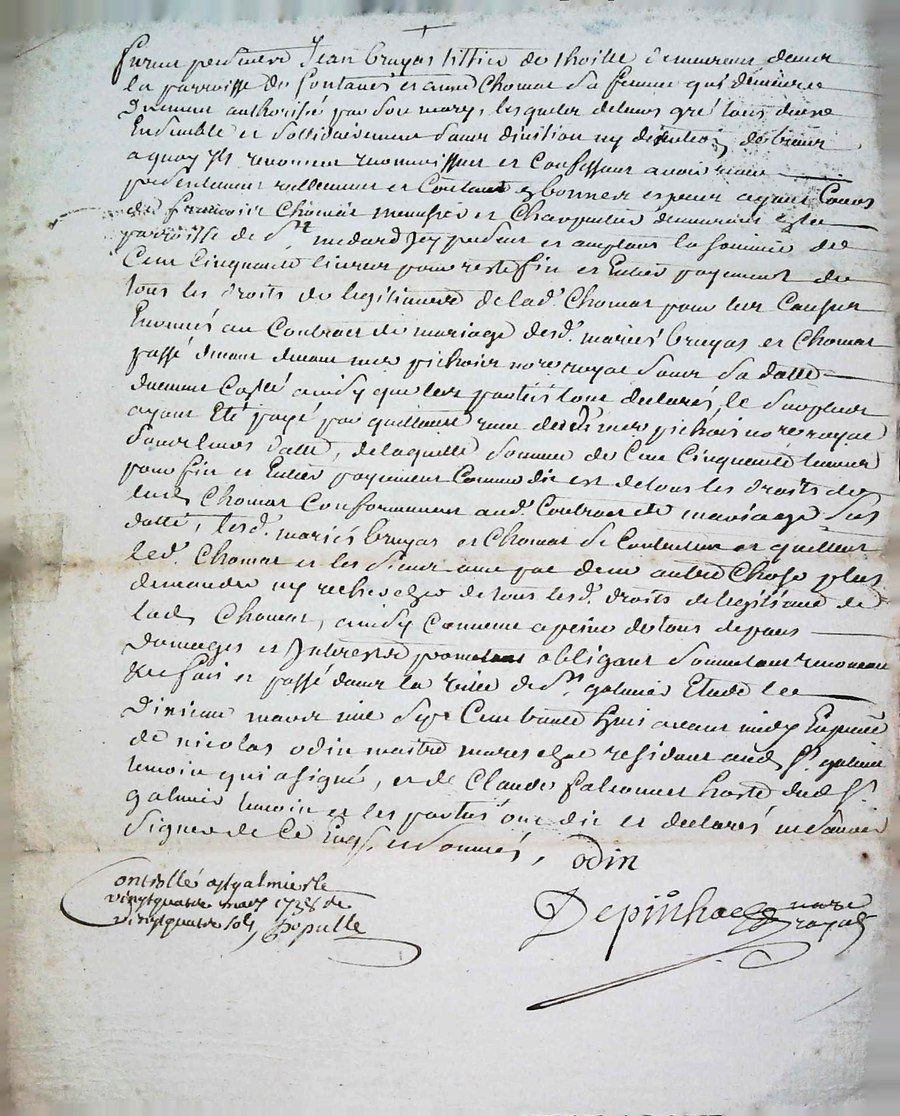 furent presents Jean bruyas tissier de thoille demeurant dans
la parroisse de fontanes et anne Chomat sa femme qui demeure
Duement authorisée par son mary, lesquels de leurs gré tous deux
Ensemble et sollidairement sans division ny discution de biens
a quoy ils renoncent reconnoissent et Confessent avoir receu
presentement reellement et Contant En bonnes especes ayant Cours
de francois Chomat menusier et Charpentier demeurant En la
parroisse de St medard Icy present et acceptant la somme de
Cent Cinquante livres pour reste fin et Entier payement de
tous les droits de legitimes de lad. Chomat pour les Causes
Enoncés au Contract de mariage desd. mariés bruyas et Chomat
passé devant me pichois nore royal sous sa datte
duement Collé ainsy que les parties lont declarés, le surplus
ayant Eté payé par quittance receu dud. me pichois nore royal
sous leurs datte, de laquelle somme de Cent Cinquante livres
pour fin et Entier payement Comme dit est de tous les droits de
lad. Chomat Conformement aud. Contract de mariage sus
datté, lesd. mariés bruyas et Chomat se Contentent et quittent
led. Chomat et les siens avec pac de ne autre Chose plus
demander ny rechercher de tous lesd. droits de legitime de
lad. Chomat, ainsy Convenu a peine de tous depans
Domages et Interests promettant obligant soumettant renoncant
&c fait et passé dans la ville de St galmier Etude le
Dixieme mars mil Sept Cent trente huit avant midy En presence
de nicolas odin maitre marechal residant aud. St. galmier
temoin qui a signé, et de Claude falconnet hoste dud. St.
galmier temoin et les parties ont dit et declarés ne scavoir
signer de ce Enqs. et sommés, odin
Controllé a St galmier le
vingtquatre mars 1738 Re
vingtquatre sols
Depinhac nore
royal